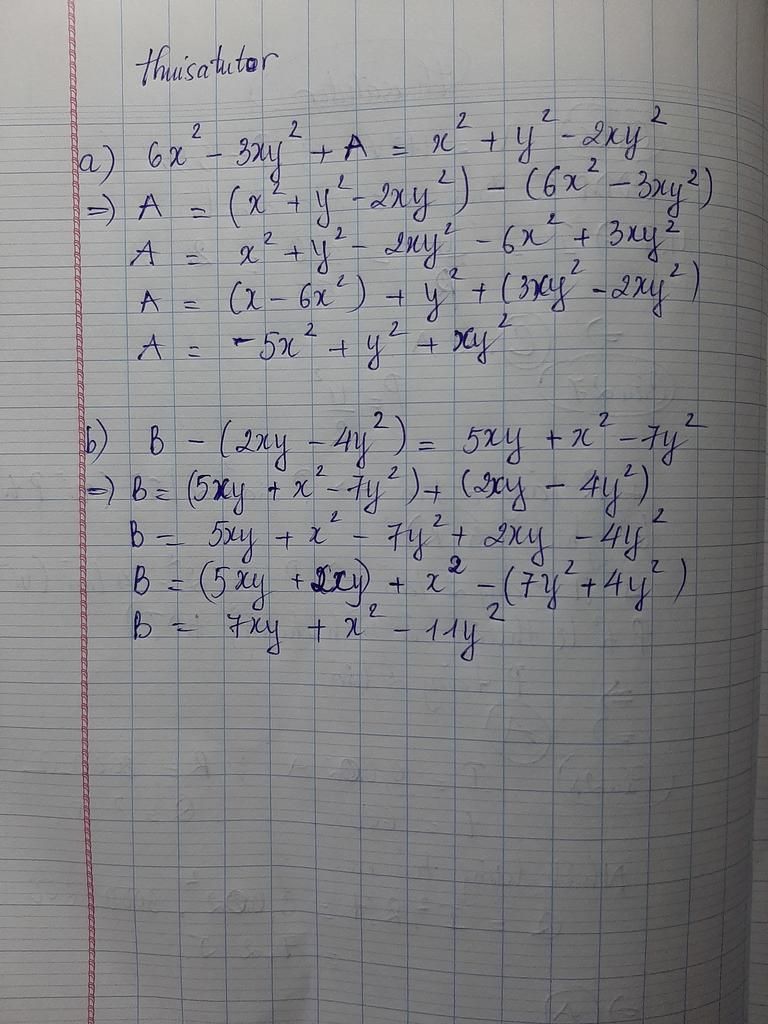 thuisatutor
a) 6x² - 3xy² + A = x² + y² - 2xy²
=) A = (x² + y² - 2xy²) - (6x² - 3xy²)
A = x² + y² - 2xy² - 6x² + 3xy²
A = (x - 6x²) + y² + (3xy² - 2xy²)
A = -5x² + y² + xy²
b) B - (2xy - 4y²) = 5xy + x² - 7y²
=) B = (5xy + x² - 7y²) + (2xy - 4y²)
B = 5xy + x² - 7y² + 2xy - 4y²
B = (5xy + 2xy) + x² - (7y² + 4y²)
B = 7xy + x² - 11y²